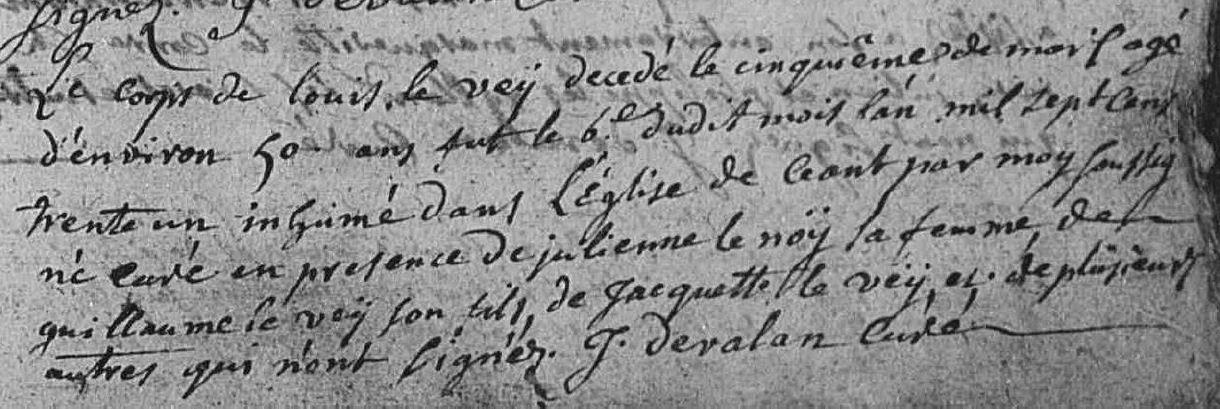 signez. J devalan
Le corps de louis le veÿ decedé le cinquiême de mars agé
d'énviron 50 ans fut le 6.e dudit mois lán mil sept cens
trente un inhumé dans L'Église de Ceant par moy soussig
né curé en presence de julienne le nöÿ sa femme, de
guillaume le veÿ son fils, de Jacquette le veÿ, et de plüsieurs
autres qui n'ont signéz. J. devalan Curé